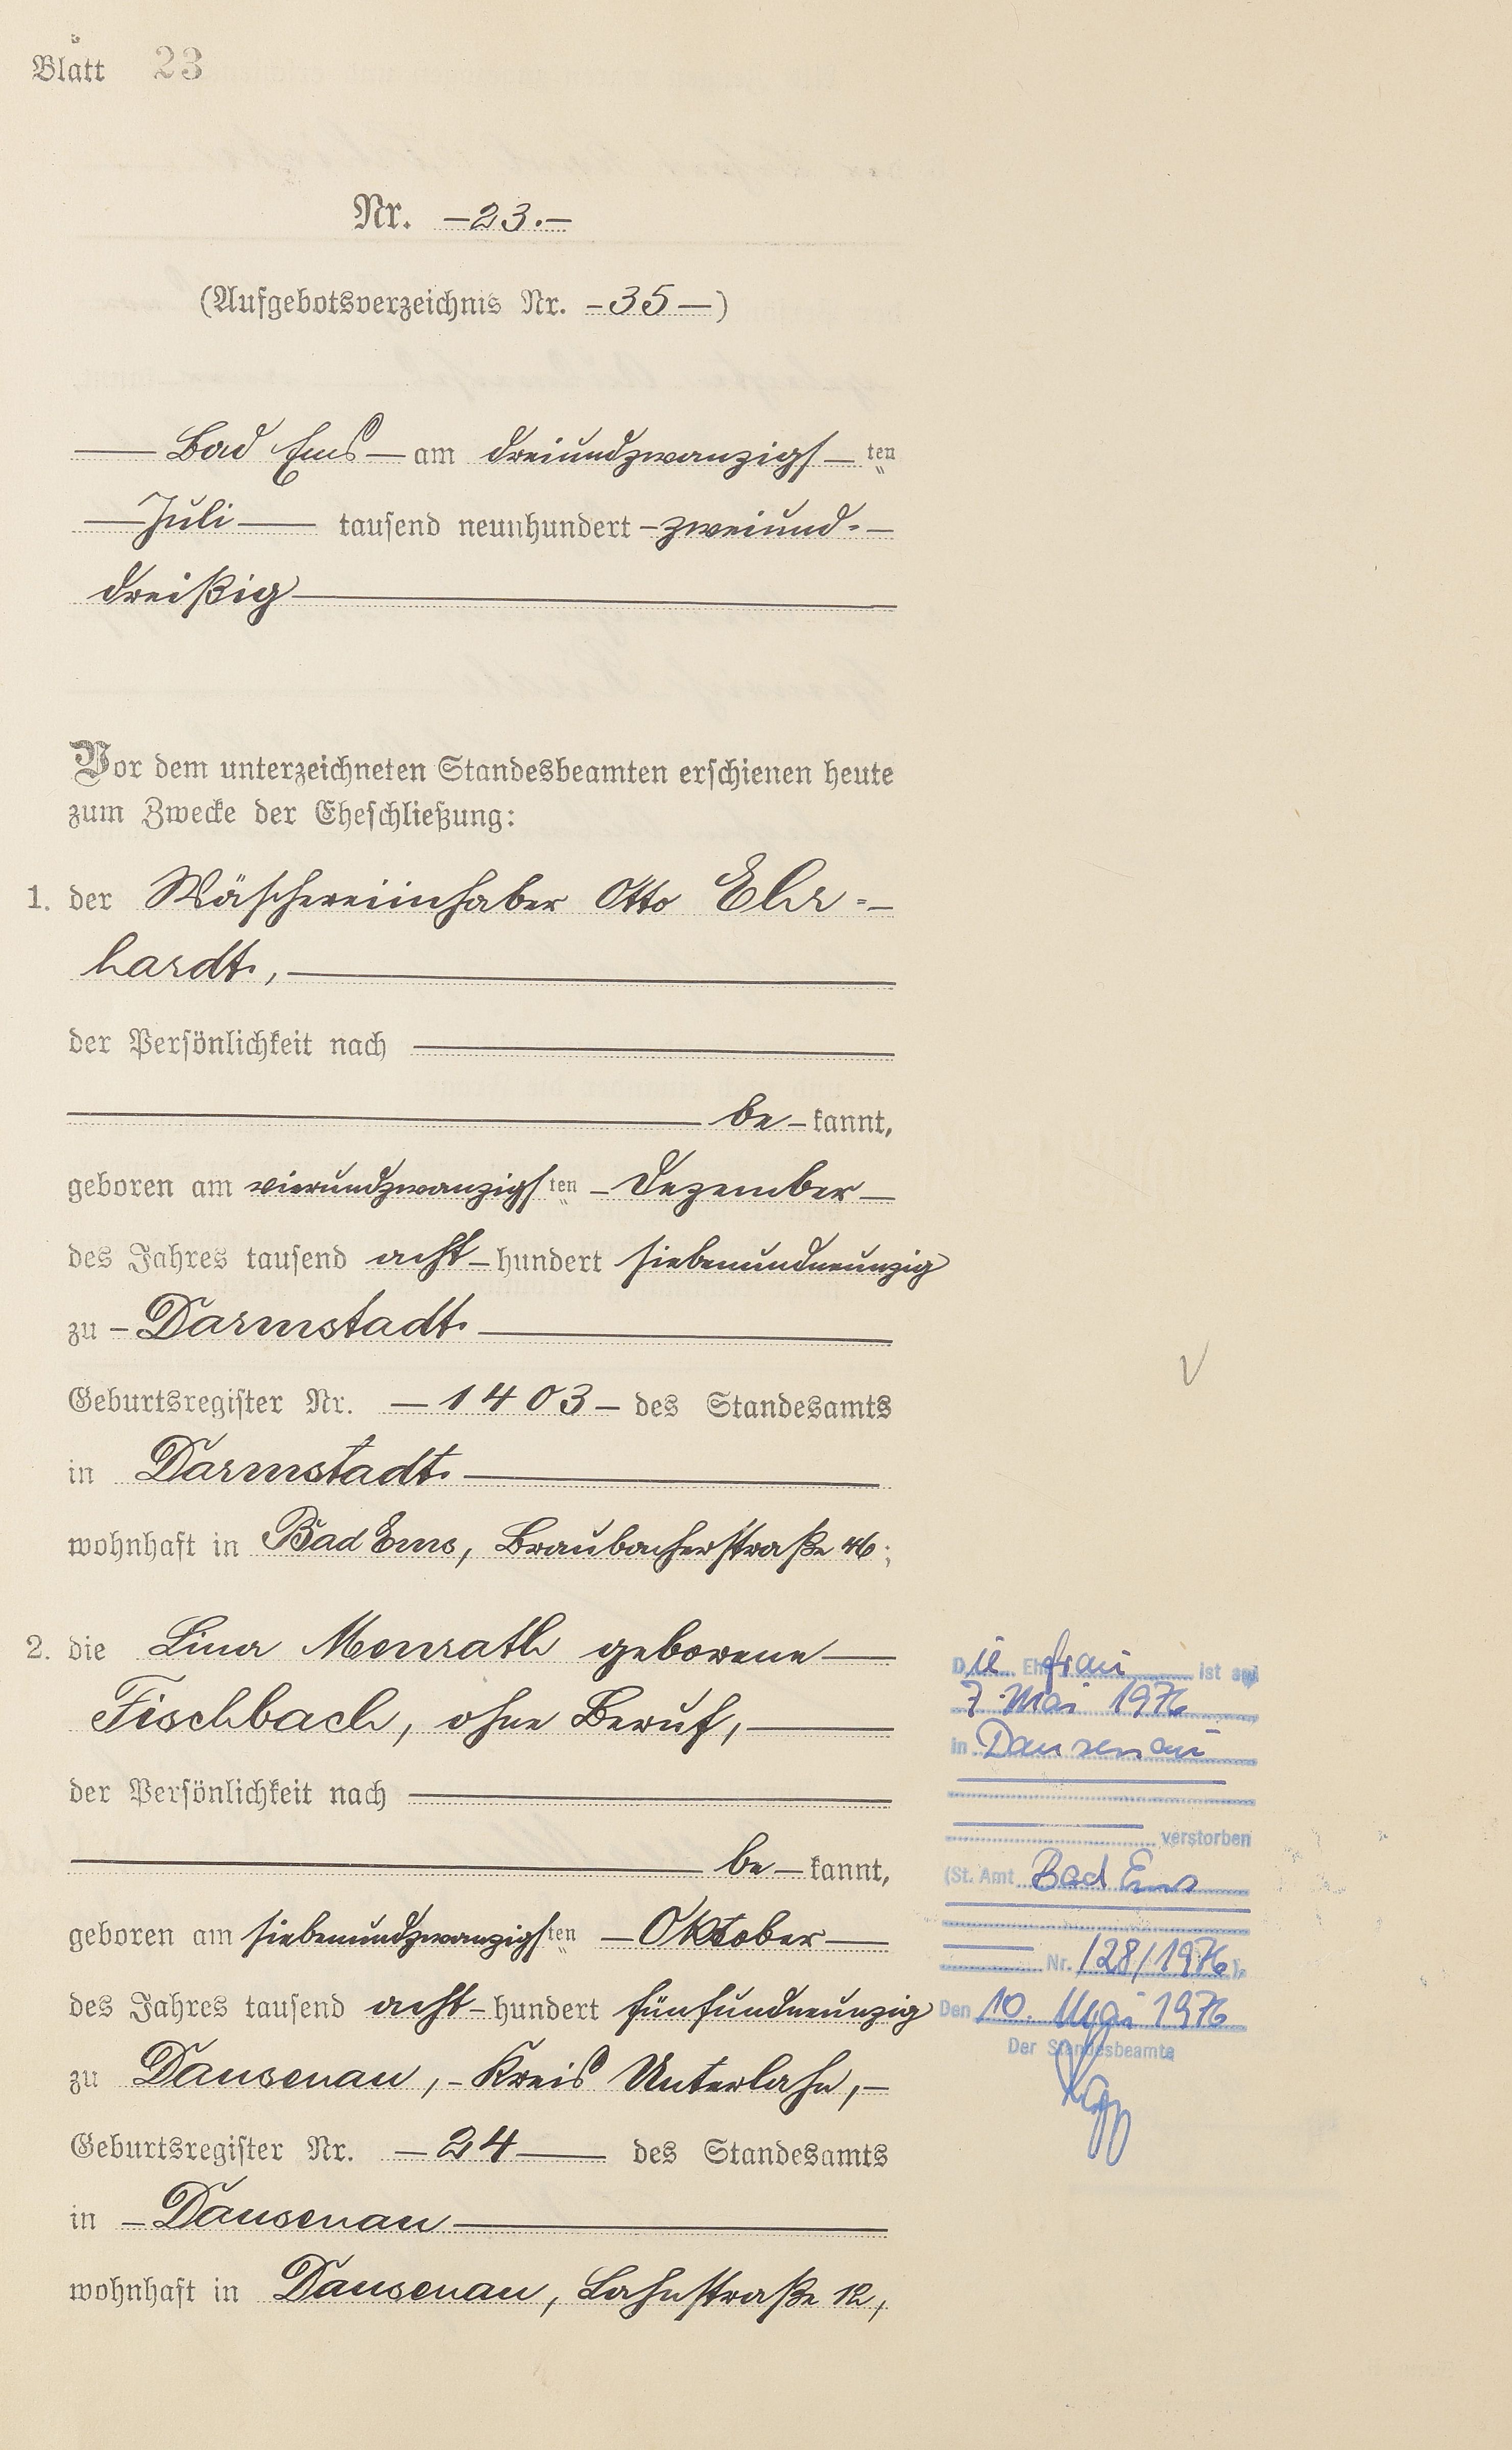 Blatt 23
Nr. –23.–
(Aufgebotsverzeichnis Nr. –35–)
— Bad Ems — am dreiundzwanzigs – ten
— Juli — tausend neunhundert – zweiund- –
dreißig —
Vor dem unterzeichneten Standesbeamten erschienen heute
zum Zwecke der Eheschließung:
1. der Wäschereiinhaber Otto Ehr- –
hardt, —
der Persönlichkeit nach —
— be – kannt,
geboren am vierundzwanzigs ten – Dezember –
des Jahres tausend acht – hundert siebenundneunzig
zu – Darmstadt —
Geburtsregister Nr. – 1403 – des Standesamts
in Darmstadt —
wohnhaft in Bad Ems, Braubacherstraße 46;
2. die Lina Menrath geborene —
Fischbach, ohne Beruf, —
der Persönlichkeit nach —
— be – kannt,
geboren am siebenundzwanzigs ten – Oktober —
des Jahres tausend acht – hundert fünfundneunzig
zu Dausenau, – Kreis Unterlahn, –
Geburtsregister Nr. – 24 — des Standesamts
in – Dausenau —
wohnhaft in Dausenau, Lahnstraße 12,
Die Ehefrau ist am
7. Mai 1976
in Dausenau
verstorben
(St. Amt Bad Ems
Nr. 128/1976).
Den 10. Mai 1976
Der Standesbeamte